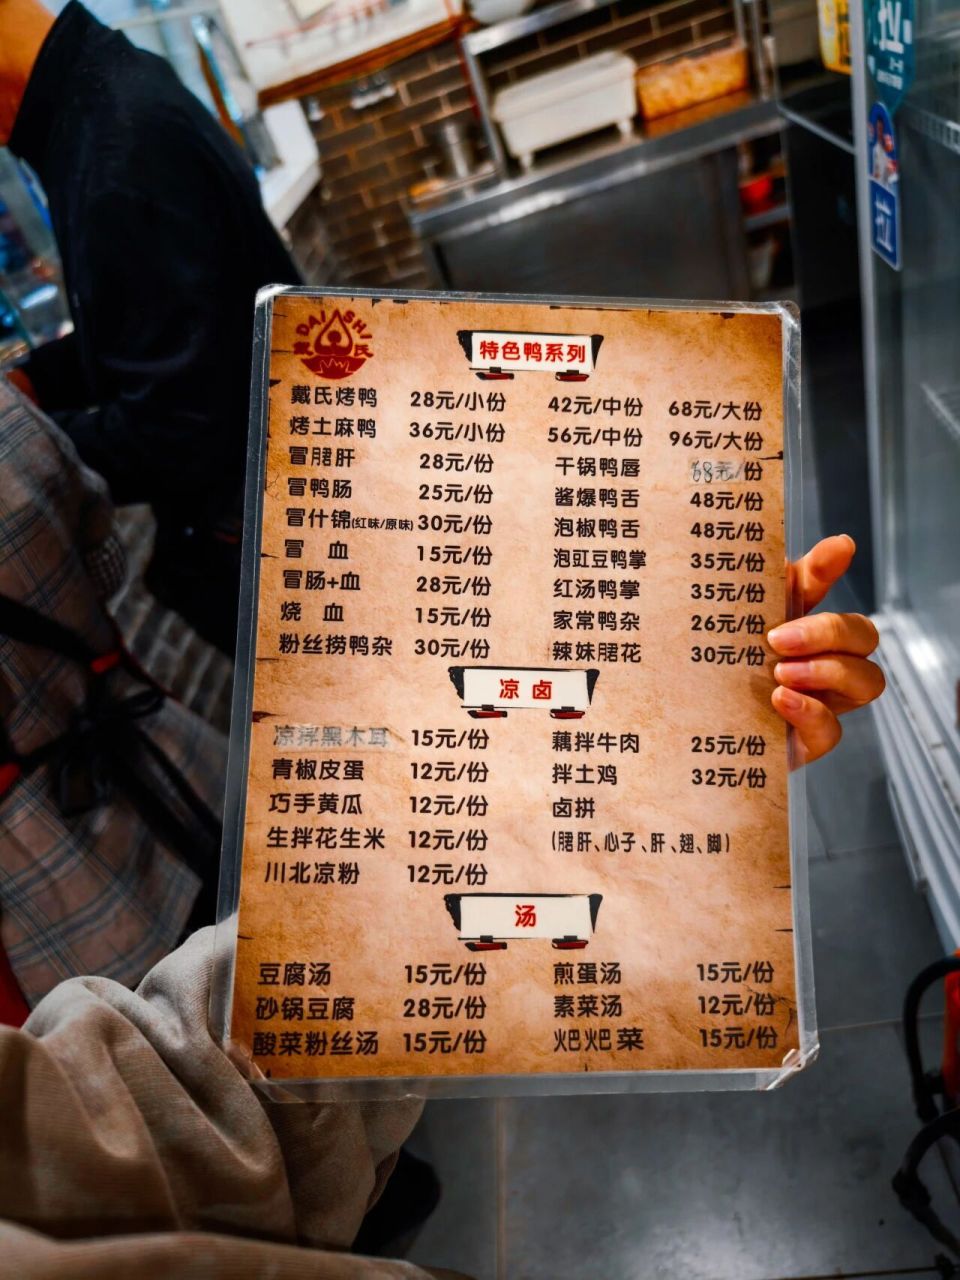 DAI SHI
戴氏
特色鸭系列
戴氏烤鸭 28元/小份 42元/中份 68元/大份
烤土麻鸭 36元/小份 56元/中份 96元/大份
冒䐃肝 28元/份 干锅鸭唇 68元/份
冒鸭肠 25元/份 酱爆鸭舌 48元/份
冒什锦(红味/原味) 30元/份 泡椒鸭舌 48元/份
冒 血 15元/份 泡豇豆鸭掌 35元/份
冒肠+血 28元/份 红汤鸭掌 35元/份
烧 血 15元/份 家常鸭杂 26元/份
粉丝捞鸭杂 30元/份 辣妹䐃花 30元/份
凉 卤
凉拌黑木耳 15元/份 藕拌牛肉 25元/份
青椒皮蛋 12元/份 拌土鸡 32元/份
巧手黄瓜 12元/份 卤拼
生拌花生米 12元/份 (䐃肝、心子、肝、翅、脚)
川北凉粉 12元/份
汤
豆腐汤 15元/份 煎蛋汤 15元/份
砂锅豆腐 28元/份 素菜汤 12元/份
酸菜粉丝汤 15元/份 火巴火巴菜 15元/份
拉